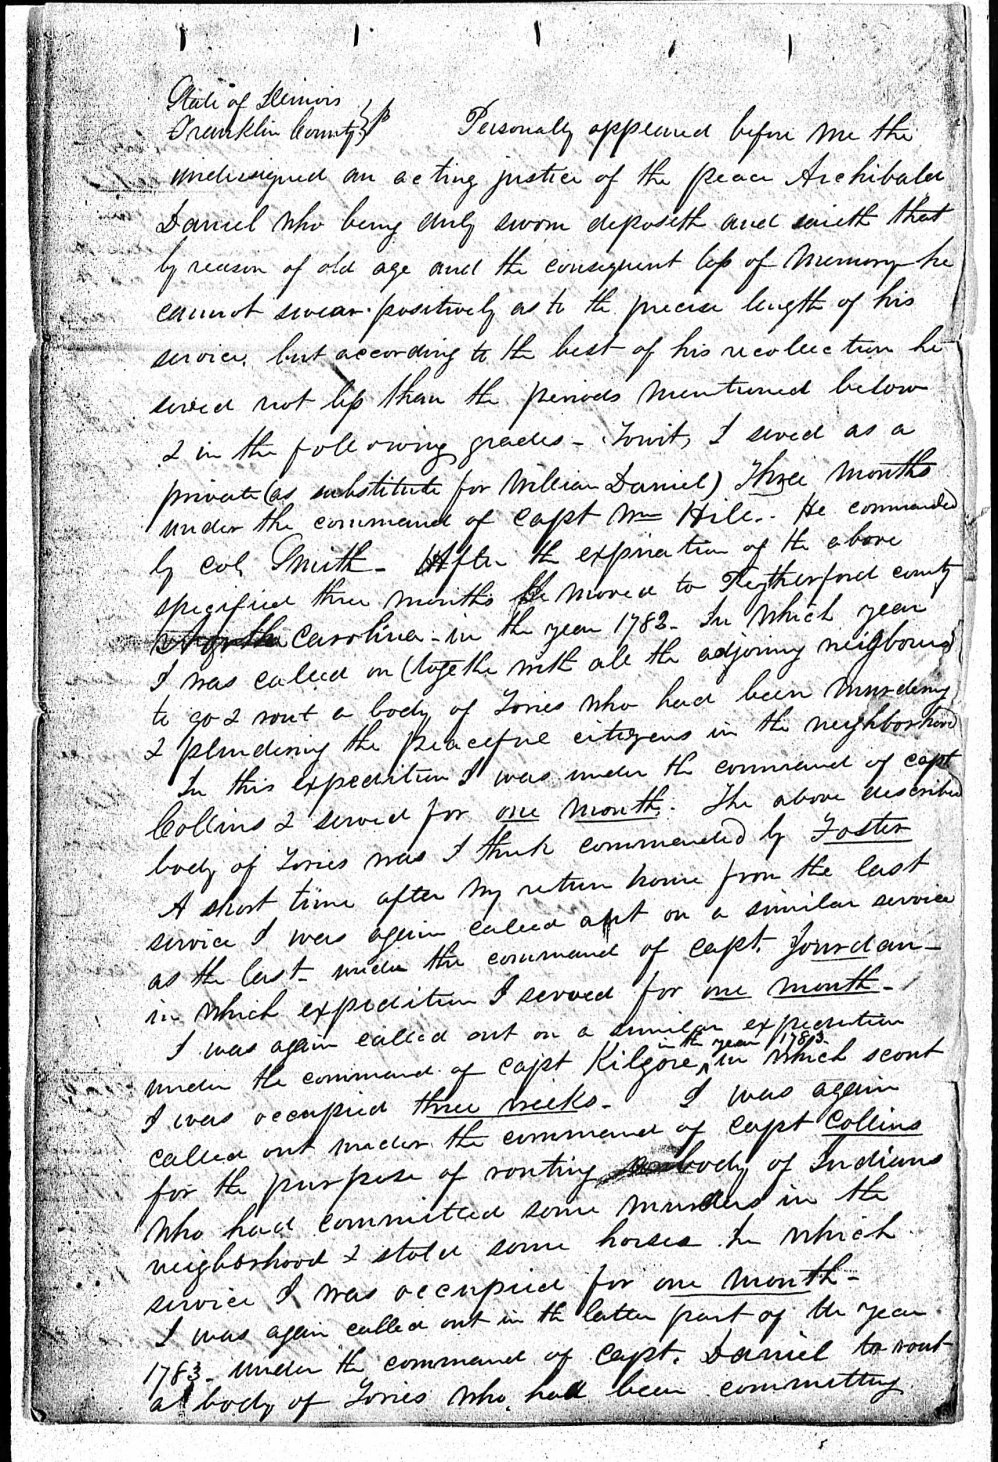 State of Illinois
Franklin County } ss Personally appeared before me the
undersigned an acting justice of the peace Archibald
Daniel who being duly sworn deposeth and saith that
by reason of old age and the consequent loss of memory he
cannot swear positively as to the precise length of his
service. but according to the best of his recollection he
served not less than the periods mentioned below
& in the following grades - Towit, I served as a
private (as substitute for William Daniel) Three months
under the command of Capt Wm Hill. He commanded
by Col Smith - After the expiration of the above
specified three months he moved to Rutherford county
North Carolina - in the year 1782 - In which year
I was called on (together with all the adjoining neighbours)
to go & rout a body of Tories who had been murdering
& plundering the peaceful citizens in the neighborhood
In this expedition I was under the command of capt
Collins & served for one month. The above described
body of Tories was I think commanded by Foster
A short time after my return home from the last
service I was again called out on a similar service
as the last - under the command of capt. Jourdan -
in which expedition I served for one month -
I was again called out on a similar expedition
in the year 1783
under the command of capt Kilgore, in which scout
I was occupied three weeks - I was again
called out under the command of Capt Collins
for the purpose of routing body of Indians
who had committed some murders in the
neighborhood & stole some horses In which
service I was occupied for one month -
I was again called out in the latter part of the year
1783 - under the command of Capt. Daniel to rout
a body of Tories who had been committing